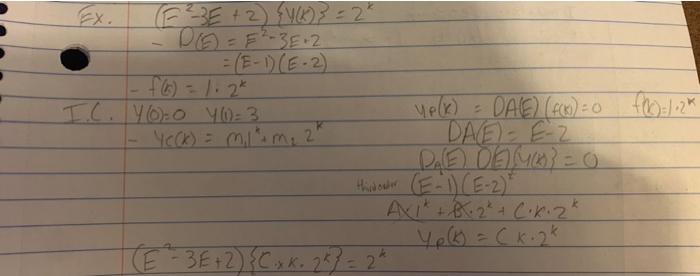 Ex. (E²-3E+2){Y(k)} = 2^k
- D(E) = E²-3E+2
= (E-1)(E-2)
- f(k) = 1·2^k
I.C. Y(0)=0 Y(1)=3
- Yc(k) = m₁1^k + m₂ 2^k
Yp(k) = DA(E)(f(k))=0 f(k)=1·2^k
DA(E) = E-2
DA(E) D(E){Y(k)} = 0
third order (E-1)(E-2)²
A·1^k + B·2^k + C·k·2^k
Yp(k) = C k·2^k
(E²-3E+2){C·k·2^k} = 2^k